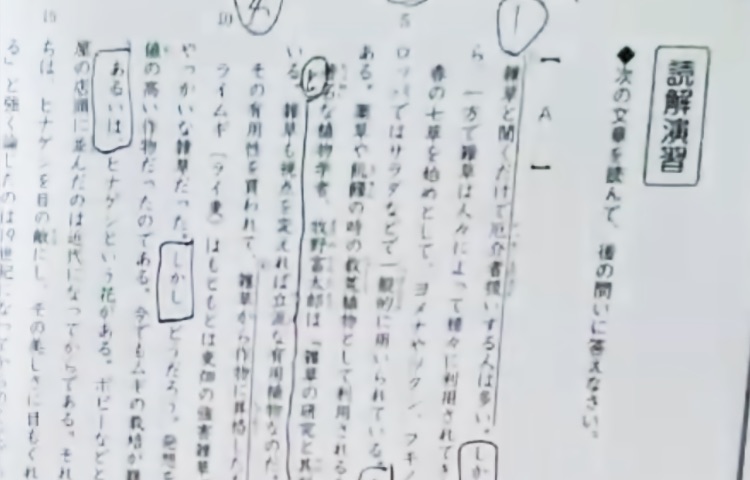 読解演習
◆次の文章を読んで、後の問いに答えなさい。
【 A 】
雑草と聞くだけで厄介者扱いする人は多い。しか
ら、一方で雑草は人々によって種々に利用されてき
春の七草を始めとして、ヨメナやノカン、フキノ
5
ロッパではサラダなどで一般的に用いられている。
ある。薬草や飢饉の時の救荒植物として利用される
著名な植物学者、牧野富太郎は「雑草の研究と其
いる。雑草も視点を変えれば立派な有用植物なのだ。
その有用性を買われて、雑草から作物に昇格した
10
ライムギ(ライ麦)はもともとは麦畑の強害雑草
やっかいな雑草だった。しかしどうだろう。発想を
値の高い作物だったのである。今でもムギの栽培が難
あるいはヒナゲシという花がある。ポピーなどと
屋の店頭に並んだのは近代になってからである。それ
15
ちは、ヒナゲシを目の敵にし、その美しさに目もくれ
る」と強く論したのは19世紀になってからのこと